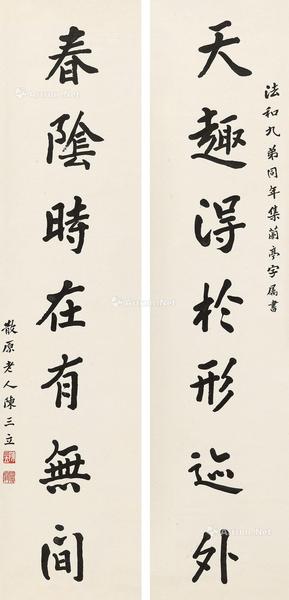 法和九弟同年集蘭亭字属書
天趣得於形迹外
春陰時在有無間
散原老人陳三立